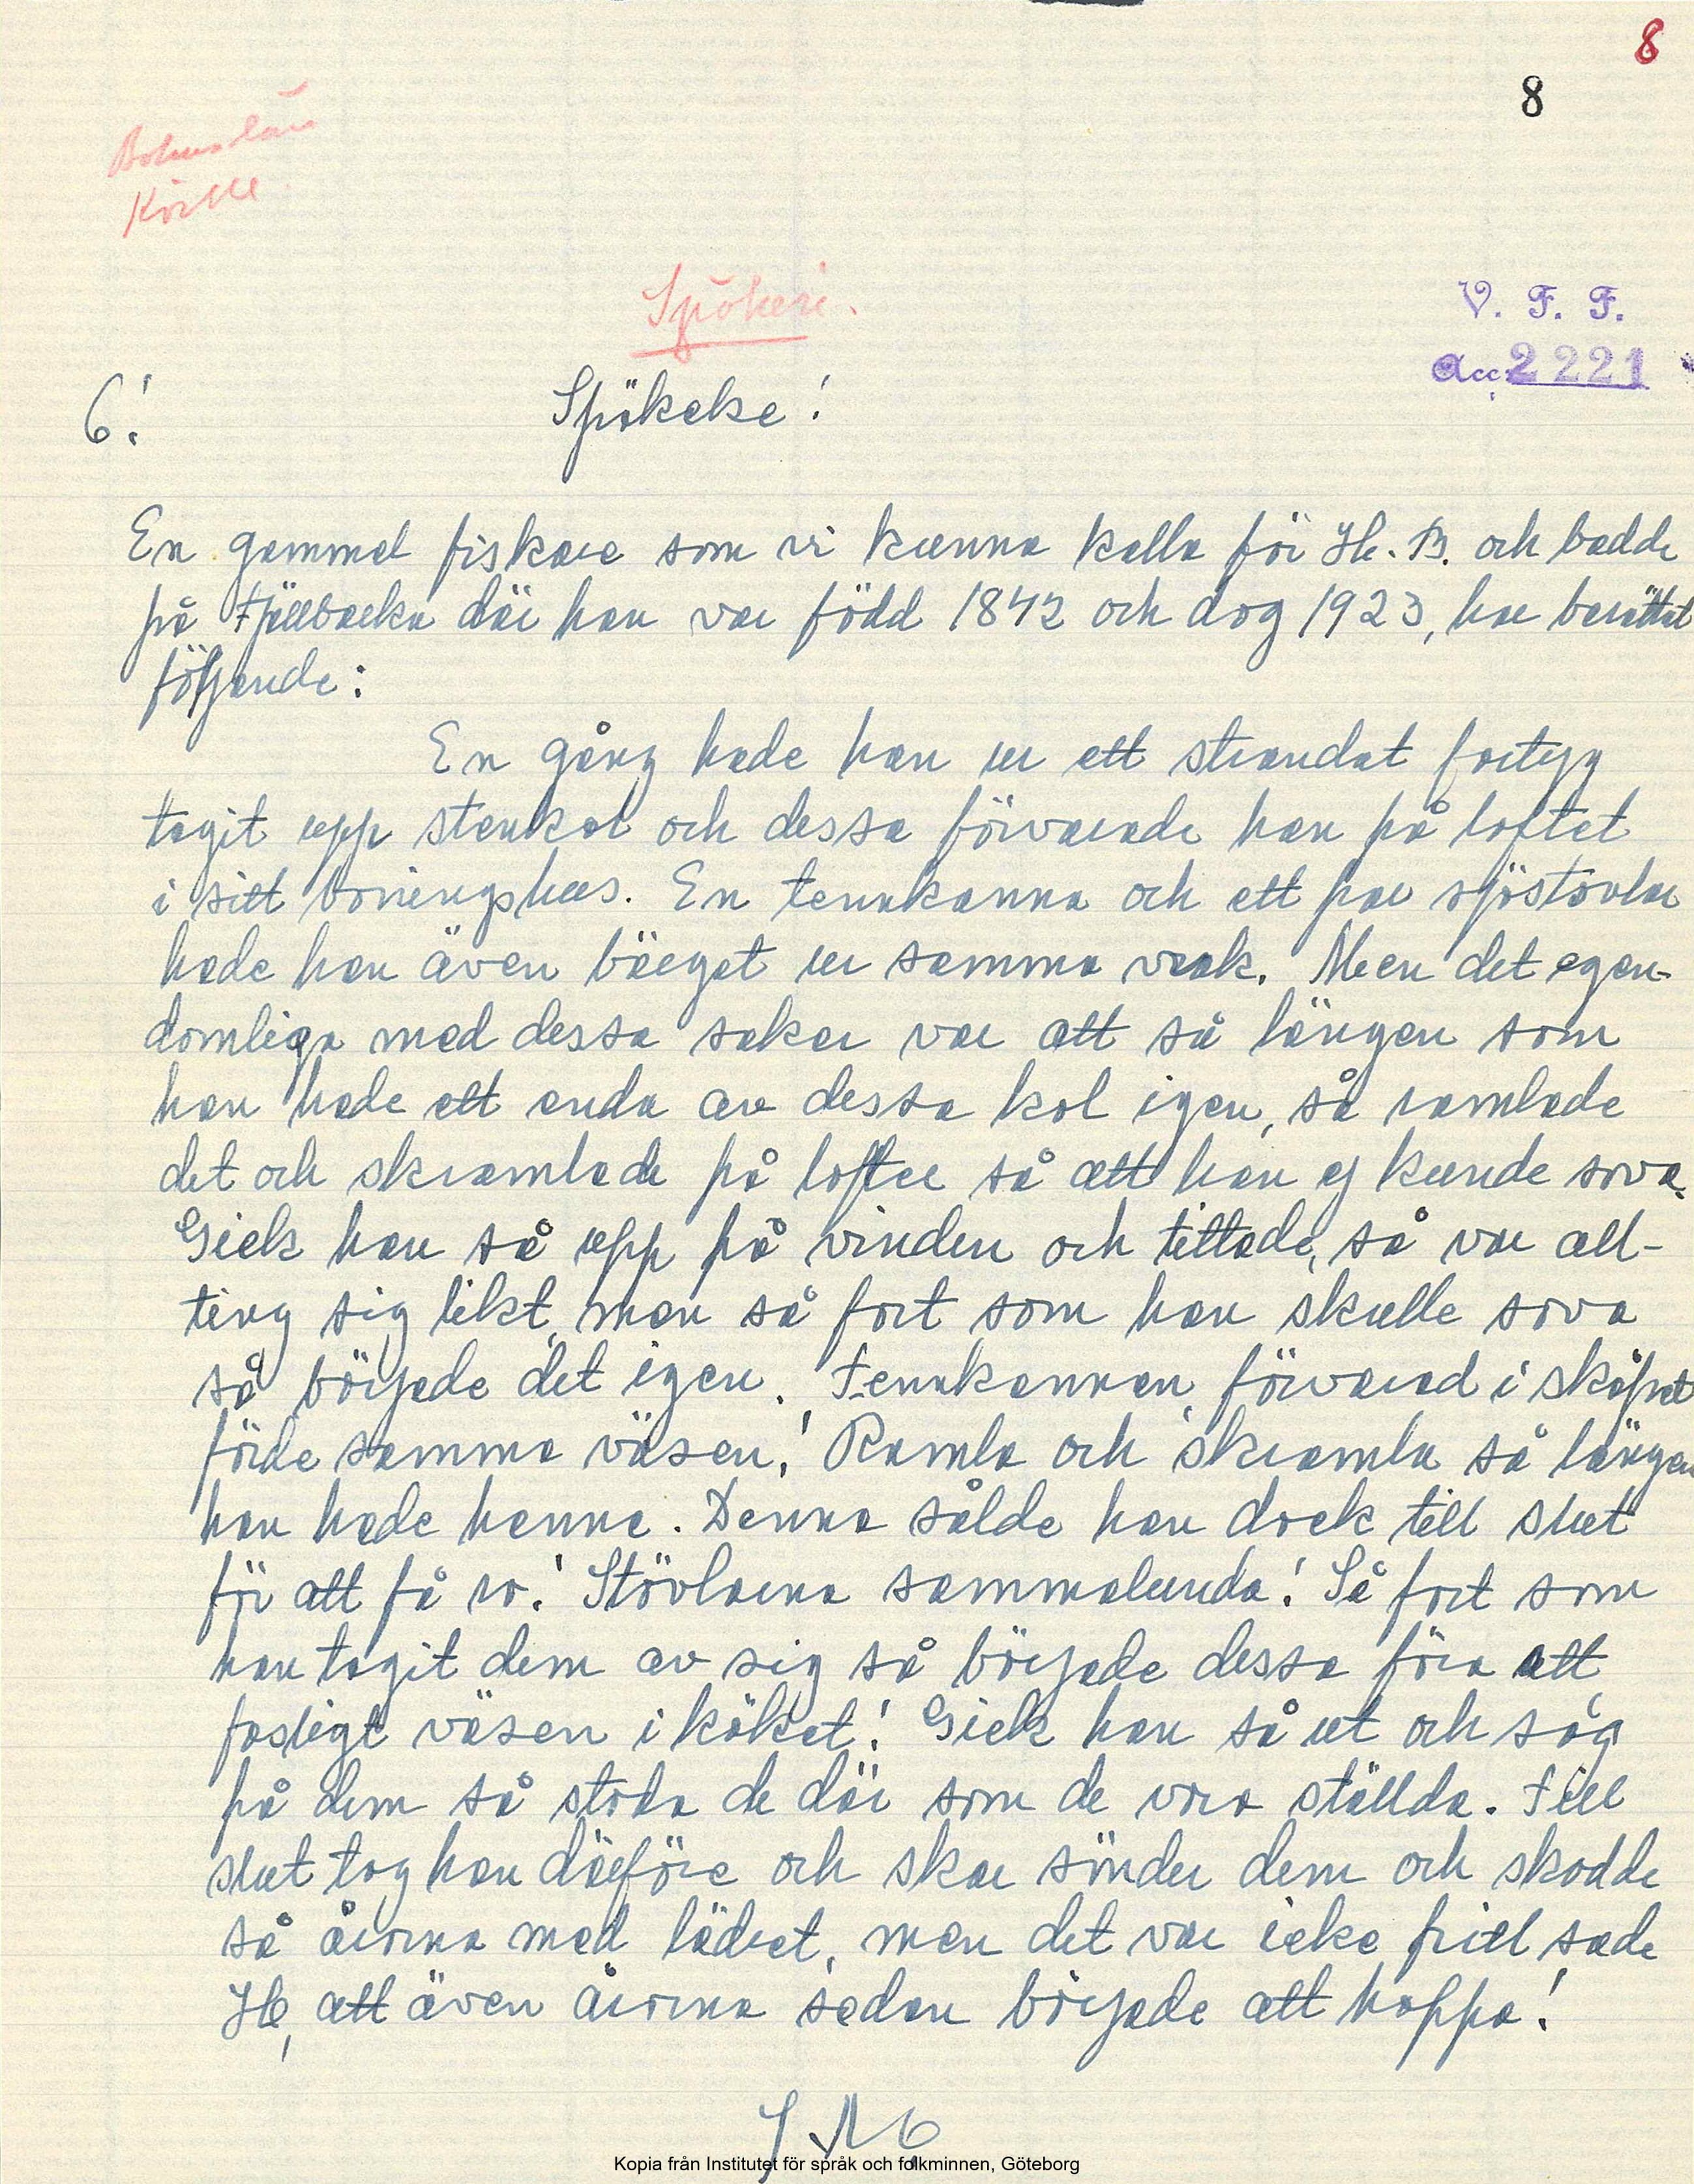 8
8
Bohuslän
Kville
Spökeri.
V. F. F.
Acc. 2221
6!
Spökelse!
En gammal fiskare som vi kunna kalla för H. B. och bodde
på Fjällbacka där han var född 1842 och dog 1923, har berättat
följande:
En gång hade han ur ett strandat fartyg
tagit upp stenkol och dessa förvarade han på loftet
i sitt boningshus. En tennkanna och ett par sjöstövlar
hade han även bärgat ur samma vrak. Men det egen-
domliga med dessa saker var att så längen som
han hade ett enda av dessa kol igen, så ramlade
det och skramlade på loftet så att han ej kunde sova.
Gick han så upp på vinden och tittade, så var all-
ting sig likt, men så fort som han skulle sova
så började det igen. Tennkannan, förvarad i skåpet
förde samma väsen! Ramla och skramla så längen
han hade henne. Denna sålde han dock till slut
för att få ro! Stövlarna sammalunda! Så fort som
han tagit dem av sig så började dessa föra ett
fasligt väsen i köket! Gick han så ut och såg
på dem så stodo de där som de voro ställda. Till
slut tog han därföre och skar sönder dem och skodde
så årorna med lädret, men det var icke fritt, sade
H, att även årorna sedan började att hoppa!
Kopia från Institutet för språk och folkminnen, Göteborg